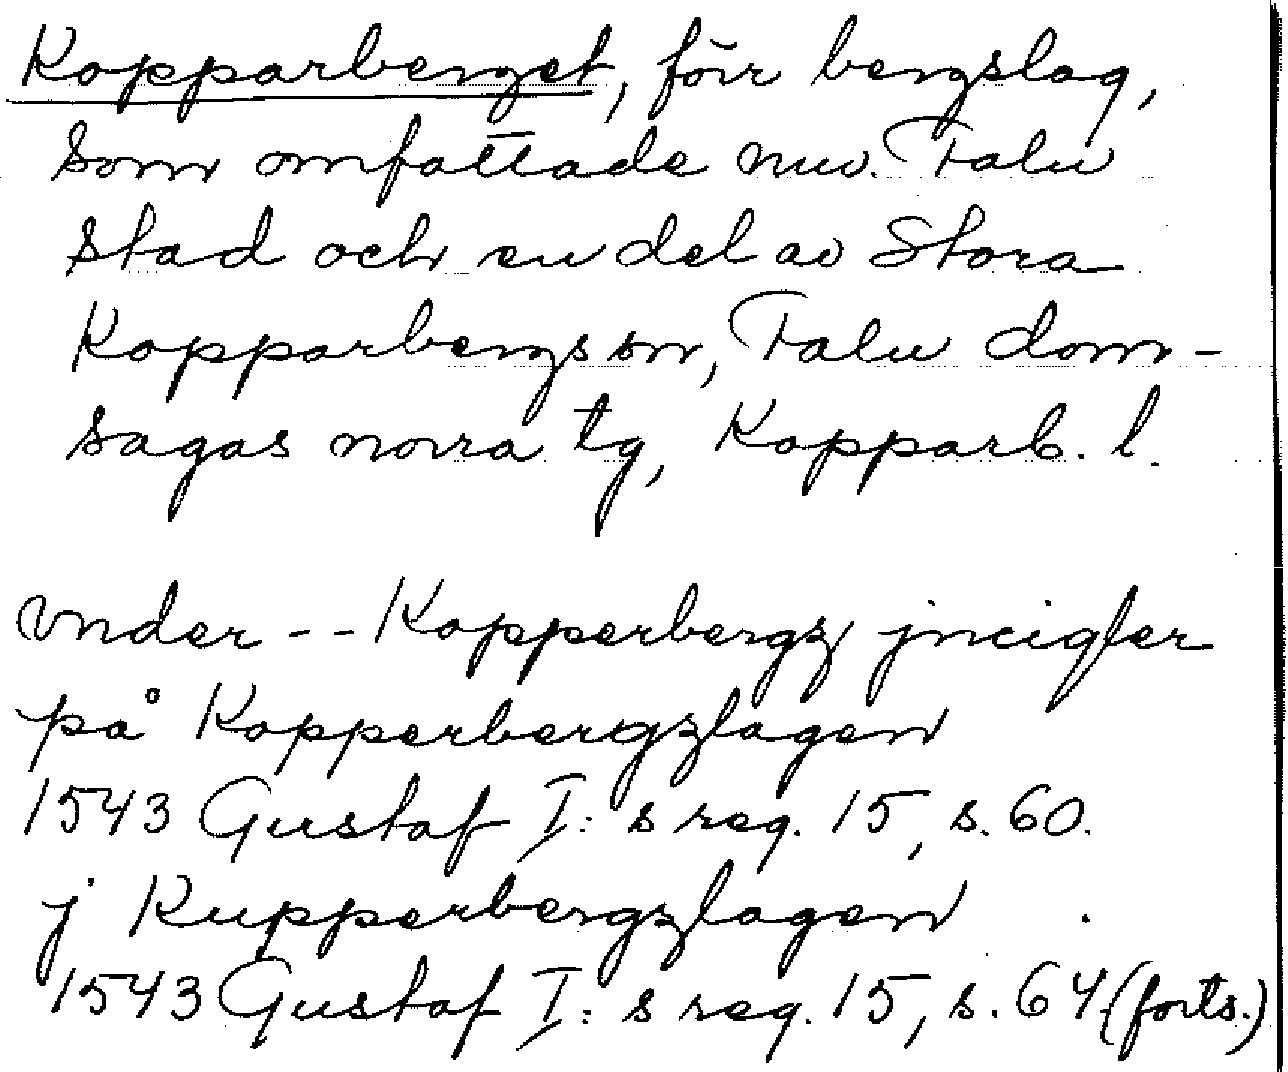 Kopparberget, förr bergslag,
som omfattade nuv. Falu
stad och en del av Stora
Kopparbergs sn, Falu dom-
sagas norra tg, Kopparb. l.
vnder -- Kopperbergz
på Kopperbergzlagen
1543 Gustaf I:s reg. 15, s. 60.
j Kupperbergzlagen
1543 Gustaf I:s reg. 15, s. 64 (forts.)